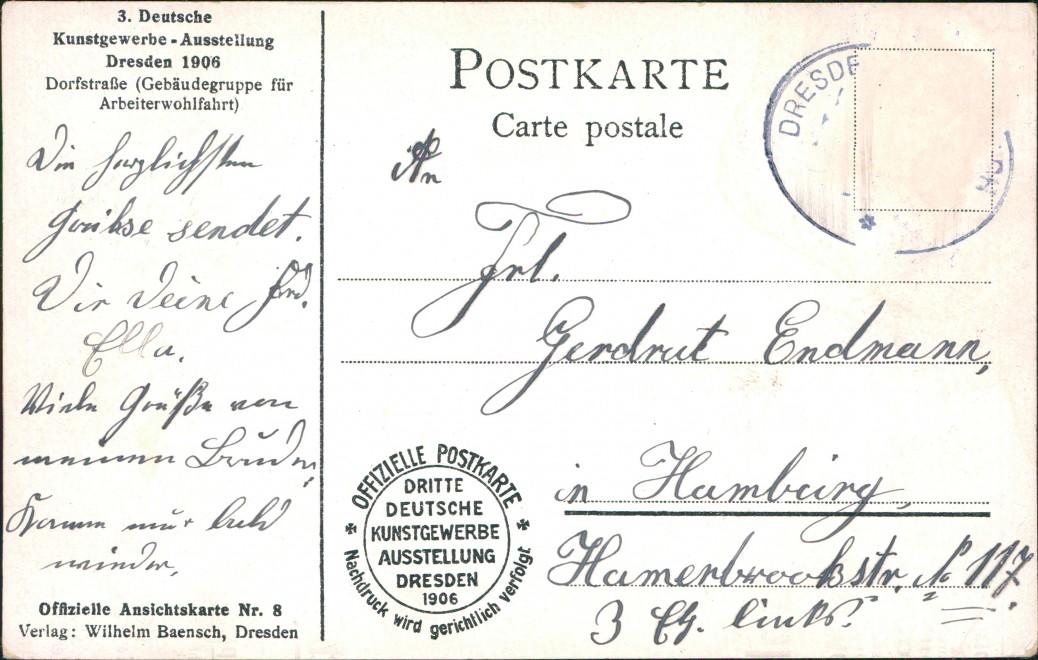 3. Deutsche
Kunstgewerbe-Ausstellung
Dresden 1906
Dorfstraße (Gebäudegruppe für
Arbeiterwohlfahrt)
Die herzlichsten
Grübse sendet.
Dir Deine Frd.
Ella.
Viele Grüße von
meinem Bruder,
Komme nur bald
wieder.
Offizielle Ansichtskarte Nr. 8
Verlag: Wilhelm Baensch, Dresden
POSTKARTE
Carte postale
DRESDE
An
Frl.
Gerdrut Endmann,
in Hamburg,
Hamerbrookstr. № 117.
3 Etg. links.
OFFIZIELLE POSTKARTE
DRITTE
DEUTSCHE
KUNSTGEWERBE
AUSSTELLUNG
DRESDEN
1906
Nachdruck wird gerichtlich verfolgt